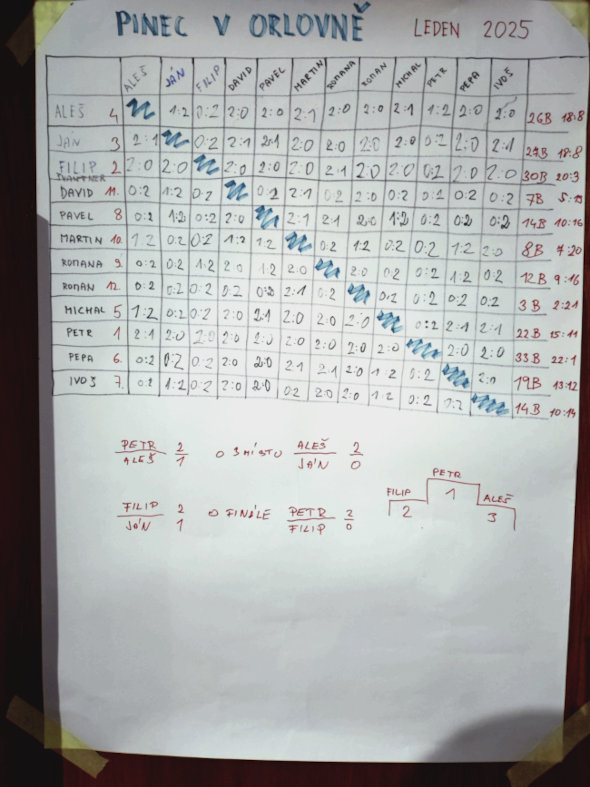 PINEC V ORLOVNĚ LEDEN 2025
ALEŠ JÁN FILIP DAVID PAVEL MARTIN ROMANA ROMAN MICHAL PETR PEPA IVOŠ
ALEŠ 4 1:2 0:2 2:0 2:0 2:1 2:0 2:0 2:1 1:2 2:0 2:0 26B 18:8
JÁN 3 2:1 0:2 2:1 2:1 2:0 2:0 2:0 2:0 0:2 2:0 2:1 27B 18:8
FILIP 2 2:0 2:0 2:0 2:0 2:0 2:1 2:0 2:0 0:2 2:0 2:0 30B 20:3
DAVID 11. 0:2 1:2 0:2 0:2 2:1 0:2 2:0 0:2 0:2 0:2 0:2 7B
PAVEL 8 0:2 1:2 0:2 2:0 2:1 2:1 2:0 1:2 0:2 0:2 0:2 14B 10:16
MARTIN 10. 1:2 0:2 0:2 1:2 1:2 0:2 1:2 0:2 0:2 1:2 2:0 8B 7:20
ROMANA 9. 0:2 0:2 1:2 2:0 1:2 2:0 2:0 0:2 0:2 1:2 0:2 12B 9:16
ROMAN 12. 0:2 0:2 0:2 0:2 0:2 2:1 0:2 0:2 0:2 0:2 0:2 3B 2:21
MICHAL 5 1:2 0:2 0:2 2:0 2:1 2:0 2:0 2:0 0:2 2:1 2:1 22B 15:11
PETR 1 2:1 2:0 2:0 2:0 2:0 2:0 2:0 2:0 2:0 2:0 2:0 33B 22:1
PEPA 6. 0:2 0:2 0:2 2:0 2:0 2:1 2:1 2:0 1:2 0:2 2:0 19B 13:12
IVOŠ 7. 0:2 1:2 0:2 2:0 2:0 0:2 2:0 2:0 1:2 0:2 0:2 14B 10:14
PETR 2 O 3 MÍSTO ALEŠ 2
ALEŠ 1 JÁN 0
FILIP 2 O FINÁLE PETR 2
JÁN 1 FILIP 0
PETR
FILIP 1 ALEŠ
2 3